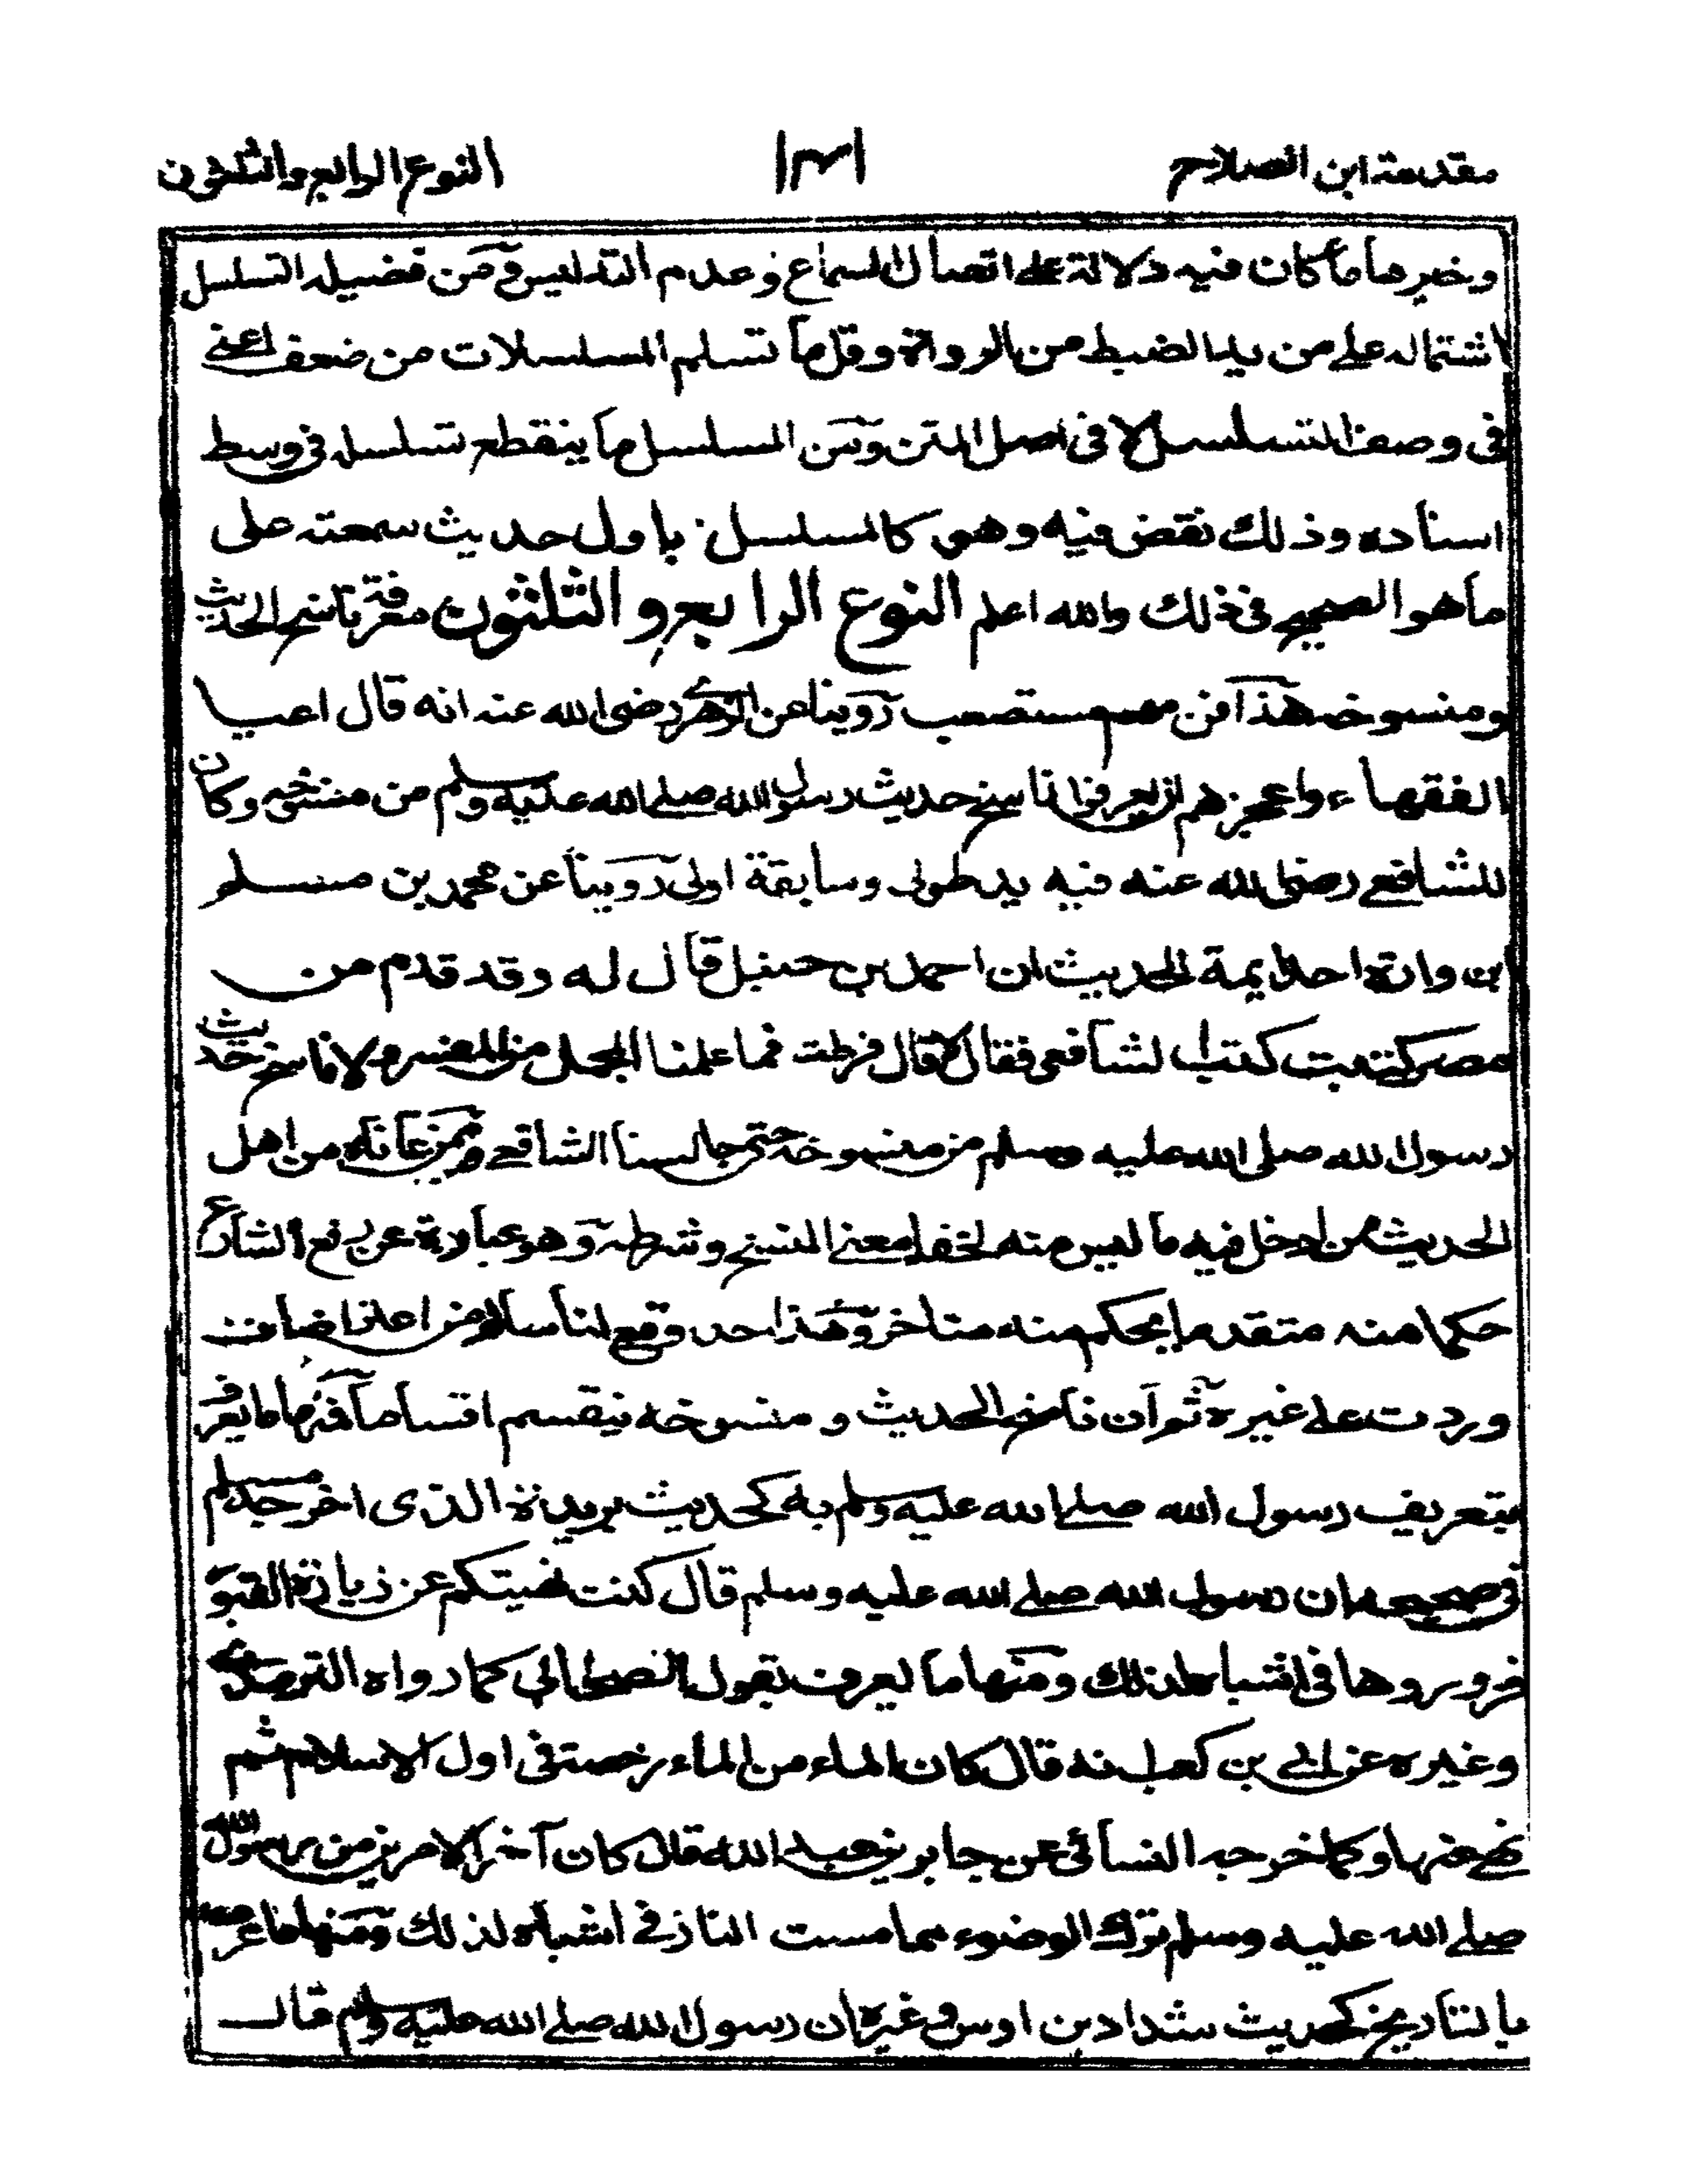 مقدمة ابن الصلاح
١٣١
النوع الرابع والثلثون
وخيرها ما كان فيه دلالة على اتصال السماع وعدم التدليس ومن فضيلة التسلسل
اشتماله على مزيد الضبط من الرواة وقل ما تسلم المسلسلات من ضعف اعني
في وصف التسلسل لا في اصل المتن ومن المسلسل ما ينقطع تسلسله في وسط
اسناده وذلك نقص فيه وهو كالمسلسل باول حديث سمعته على
ما هو الصحيح في ذلك والله اعلم النوع الرابع والثلثون معرفة ناسخ الحديث
ومنسوخه هذا فن مهم مستصعب روينا عن الزهري رضي الله عنه انه قال اعيا
الفقهاء واعجزهم ان يعرفوا ناسخ حديث رسول الله صلى الله عليه وسلم من منسوخه وكان
للشافعي رضي الله عنه فيه يد طولى وسابقة اولى روينا عن محمد بن مسلم
ابن وارة احد ايمة الحديث ان احمد بن حنبل قال له وقد قدم من
مصر كتبت كتب الشافعي فقال لا قال فرطت فما علمنا المجمل من المفسر ولا ناسخ حديث
رسول الله صلى الله عليه وسلم من منسوخه حتى جالسنا الشافعي وممن عاناه من اهل
الحديث من ادخل فيه ما ليس منه لخفاء معنى النسخ وشرطه وهو عبارة عن رفع الشارع
حكما منه متقدما بحكم منه متاخر وهذا حد وقع لنا سالم من اعتراضات
وردت على غيره ثم ان ناسخ الحديث ومنسوخه ينقسم اقساما فمنها ما يعرف
بتعريف رسول الله صلى الله عليه وسلم به كحديث بريدة الذي اخرجه مسلم
في صحيحه ان رسول الله صلى الله عليه وسلم قال كنت نهيتكم عن زيارة القبور
فزوروها في اشباه لذلك ومنها ما يعرف بقول الصحابي كما رواه الترمذي
وغيره عن ابي بن كعب انه قال كان الماء من الماء رخصة في اول الاسلام ثم
نهي عنها وكما خرجه النسائي عن جابر بن عبد الله قال كان آخر الامرين من رسول الله
صلى الله عليه وسلم ترك الوضوء مما مست النار في اشباه لذلك ومنها ما عرف
بالتاريخ كحديث شداد بن اوس وغيره ان رسول الله صلى الله عليه وسلم قال